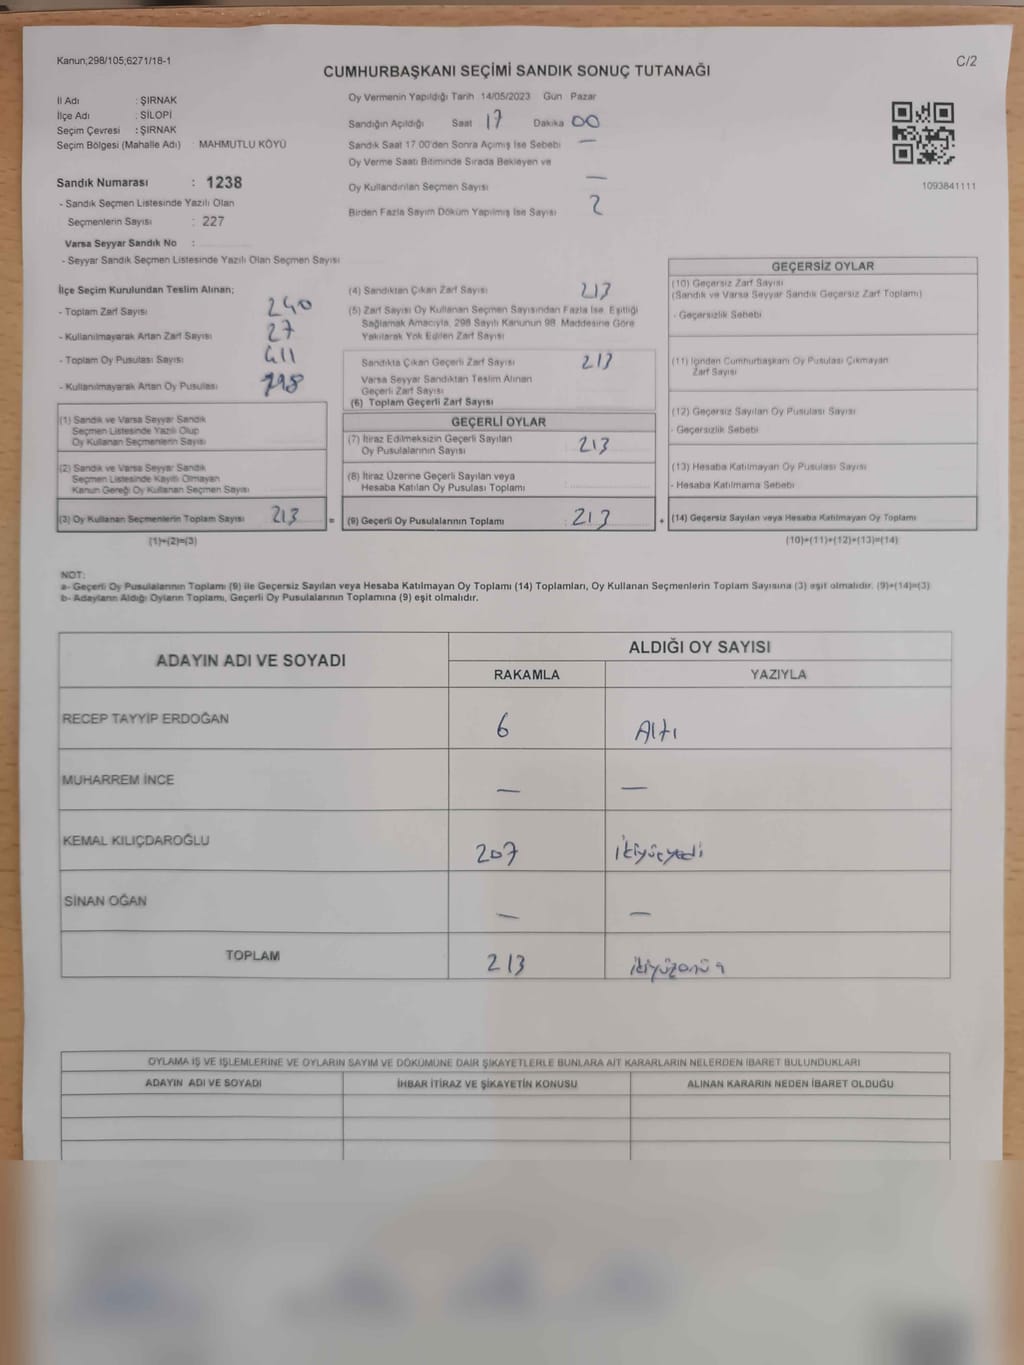 Kanun;298/105;6271/18-1
C/2
CUMHURBAŞKANI SEÇİMİ SANDIK SONUÇ TUTANAĞI
İl Adı : ŞIRNAK
İlçe Adı : SİLOPİ
Seçim Çevresi : ŞIRNAK
Seçim Bölgesi (Mahalle Adı) : MAHMUTLU KÖYÜ
Sandık Numarası : 1238
- Sandık Seçmen Listesinde Yazılı Olan
Seçmenlerin Sayısı : 227
Varsa Seyyar Sandık No :
- Seyyar Sandık Seçmen Listesinde Yazılı Olan Seçmen Sayısı
Oy Vermenin Yapıldığı Tarih 14/05/2023 Gün Pazar
Sandığın Açıldığı Saat 17 Dakika 00
Sandık Saat 17.00'den Sonra Açımış İse Sebebi —
Oy Verme Saati Bitiminde Sırada Bekleyen ve
Oy Kullandırılan Seçmen Sayısı —
Birden Fazla Sayım Döküm Yapılmış İse Sayısı 2
1093841111
İlçe Seçim Kurulundan Teslim Alınan;
- Toplam Zarf Sayısı 240
- Kullanılmayarak Artan Zarf Sayısı 27
- Toplam Oy Pusulası Sayısı 411
- Kullanılmayarak Artan Oy Pusulası 198
(1) Sandık ve Varsa Seyyar Sandık
Seçmen Listesinde Yazılı Olup
Oy Kullanan Seçmenlerin Sayısı
(2) Sandık ve Varsa Seyyar Sandık
Seçmen Listesinde Kayıtlı Olmayan
Kanun Gereği Oy Kullanan Seçmen Sayısı
(3) Oy Kullanan Seçmenlerin Toplam Sayısı 213 =
(1)+(2)=(3)
(4) Sandıktan Çıkan Zarf Sayısı 213
(5) Zarf Sayısı Oy Kullanan Seçmen Sayısından Fazla İse, Eşitliği
Sağlamak Amacıyla, 298 Sayılı Kanunun 98. Maddesine Göre
Yakılarak Yok Edilen Zarf Sayısı
Sandıkta Çıkan Geçerli Zarf Sayısı 213
Varsa Seyyar Sandıktan Teslim Alınan
Geçerli Zarf Sayısı
(6) Toplam Geçerli Zarf Sayısı
GEÇERLİ OYLAR
(7) İtiraz Edilmeksizin Geçerli Sayılan
Oy Pusulalarının Sayısı 213
(8) İtiraz Üzerine Geçerli Sayılan veya
Hesaba Katılan Oy Pusulası Toplamı
(9) Geçerli Oy Pusulalarının Toplamı 213 +
GEÇERSİZ OYLAR
(10) Geçersiz Zarf Sayısı
(Sandık ve Varsa Seyyar Sandık Geçersiz Zarf Toplamı)
- Geçersizlik Sebebi
(11) İçinden Cumhurbaşkanı Oy Pusulası Çıkmayan
Zarf Sayısı
(12) Geçersiz Sayılan Oy Pusulası Sayısı
- Geçersizlik Sebebi
(13) Hesaba Katılmayan Oy Pusulası Sayısı
- Hesaba Katılmama Sebebi
(14) Geçersiz Sayılan veya Hesaba Katılmayan Oy Toplamı
(10)+(11)+(12)+(13)=(14)
NOT:
a- Geçerli Oy Pusulalarının Toplamı (9) ile Geçersiz Sayılan veya Hesaba Katılmayan Oy Toplamı (14) Toplamları, Oy Kullanan Seçmenlerin Toplam Sayısına (3) eşit olmalıdır. (9)+(14)=(3)
b- Adayların Aldığı Oyların Toplamı, Geçerli Oy Pusulalarının Toplamına (9) eşit olmalıdır.
ADAYIN ADI VE SOYADI
ALDIĞI OY SAYISI
RAKAMLA YAZIYLA
RECEP TAYYİP ERDOĞAN 6 Altı
MUHARREM İNCE — —
KEMAL KILIÇDAROĞLU 207 ikiyüzyedi
SİNAN OĞAN — —
TOPLAM 213
OYLAMA İŞ VE İŞLEMLERİNE VE OYLARIN SAYIM VE DÖKÜMÜNE DAİR ŞİKAYETLERLE BUNLARA AİT KARARLARIN NELERDEN İBARET BULUNDUKLARI
ADAYIN ADI VE SOYADI İHBAR İTİRAZ VE ŞİKAYETİN KONUSU ALINAN KARARIN NEDEN İBARET OLDUĞU